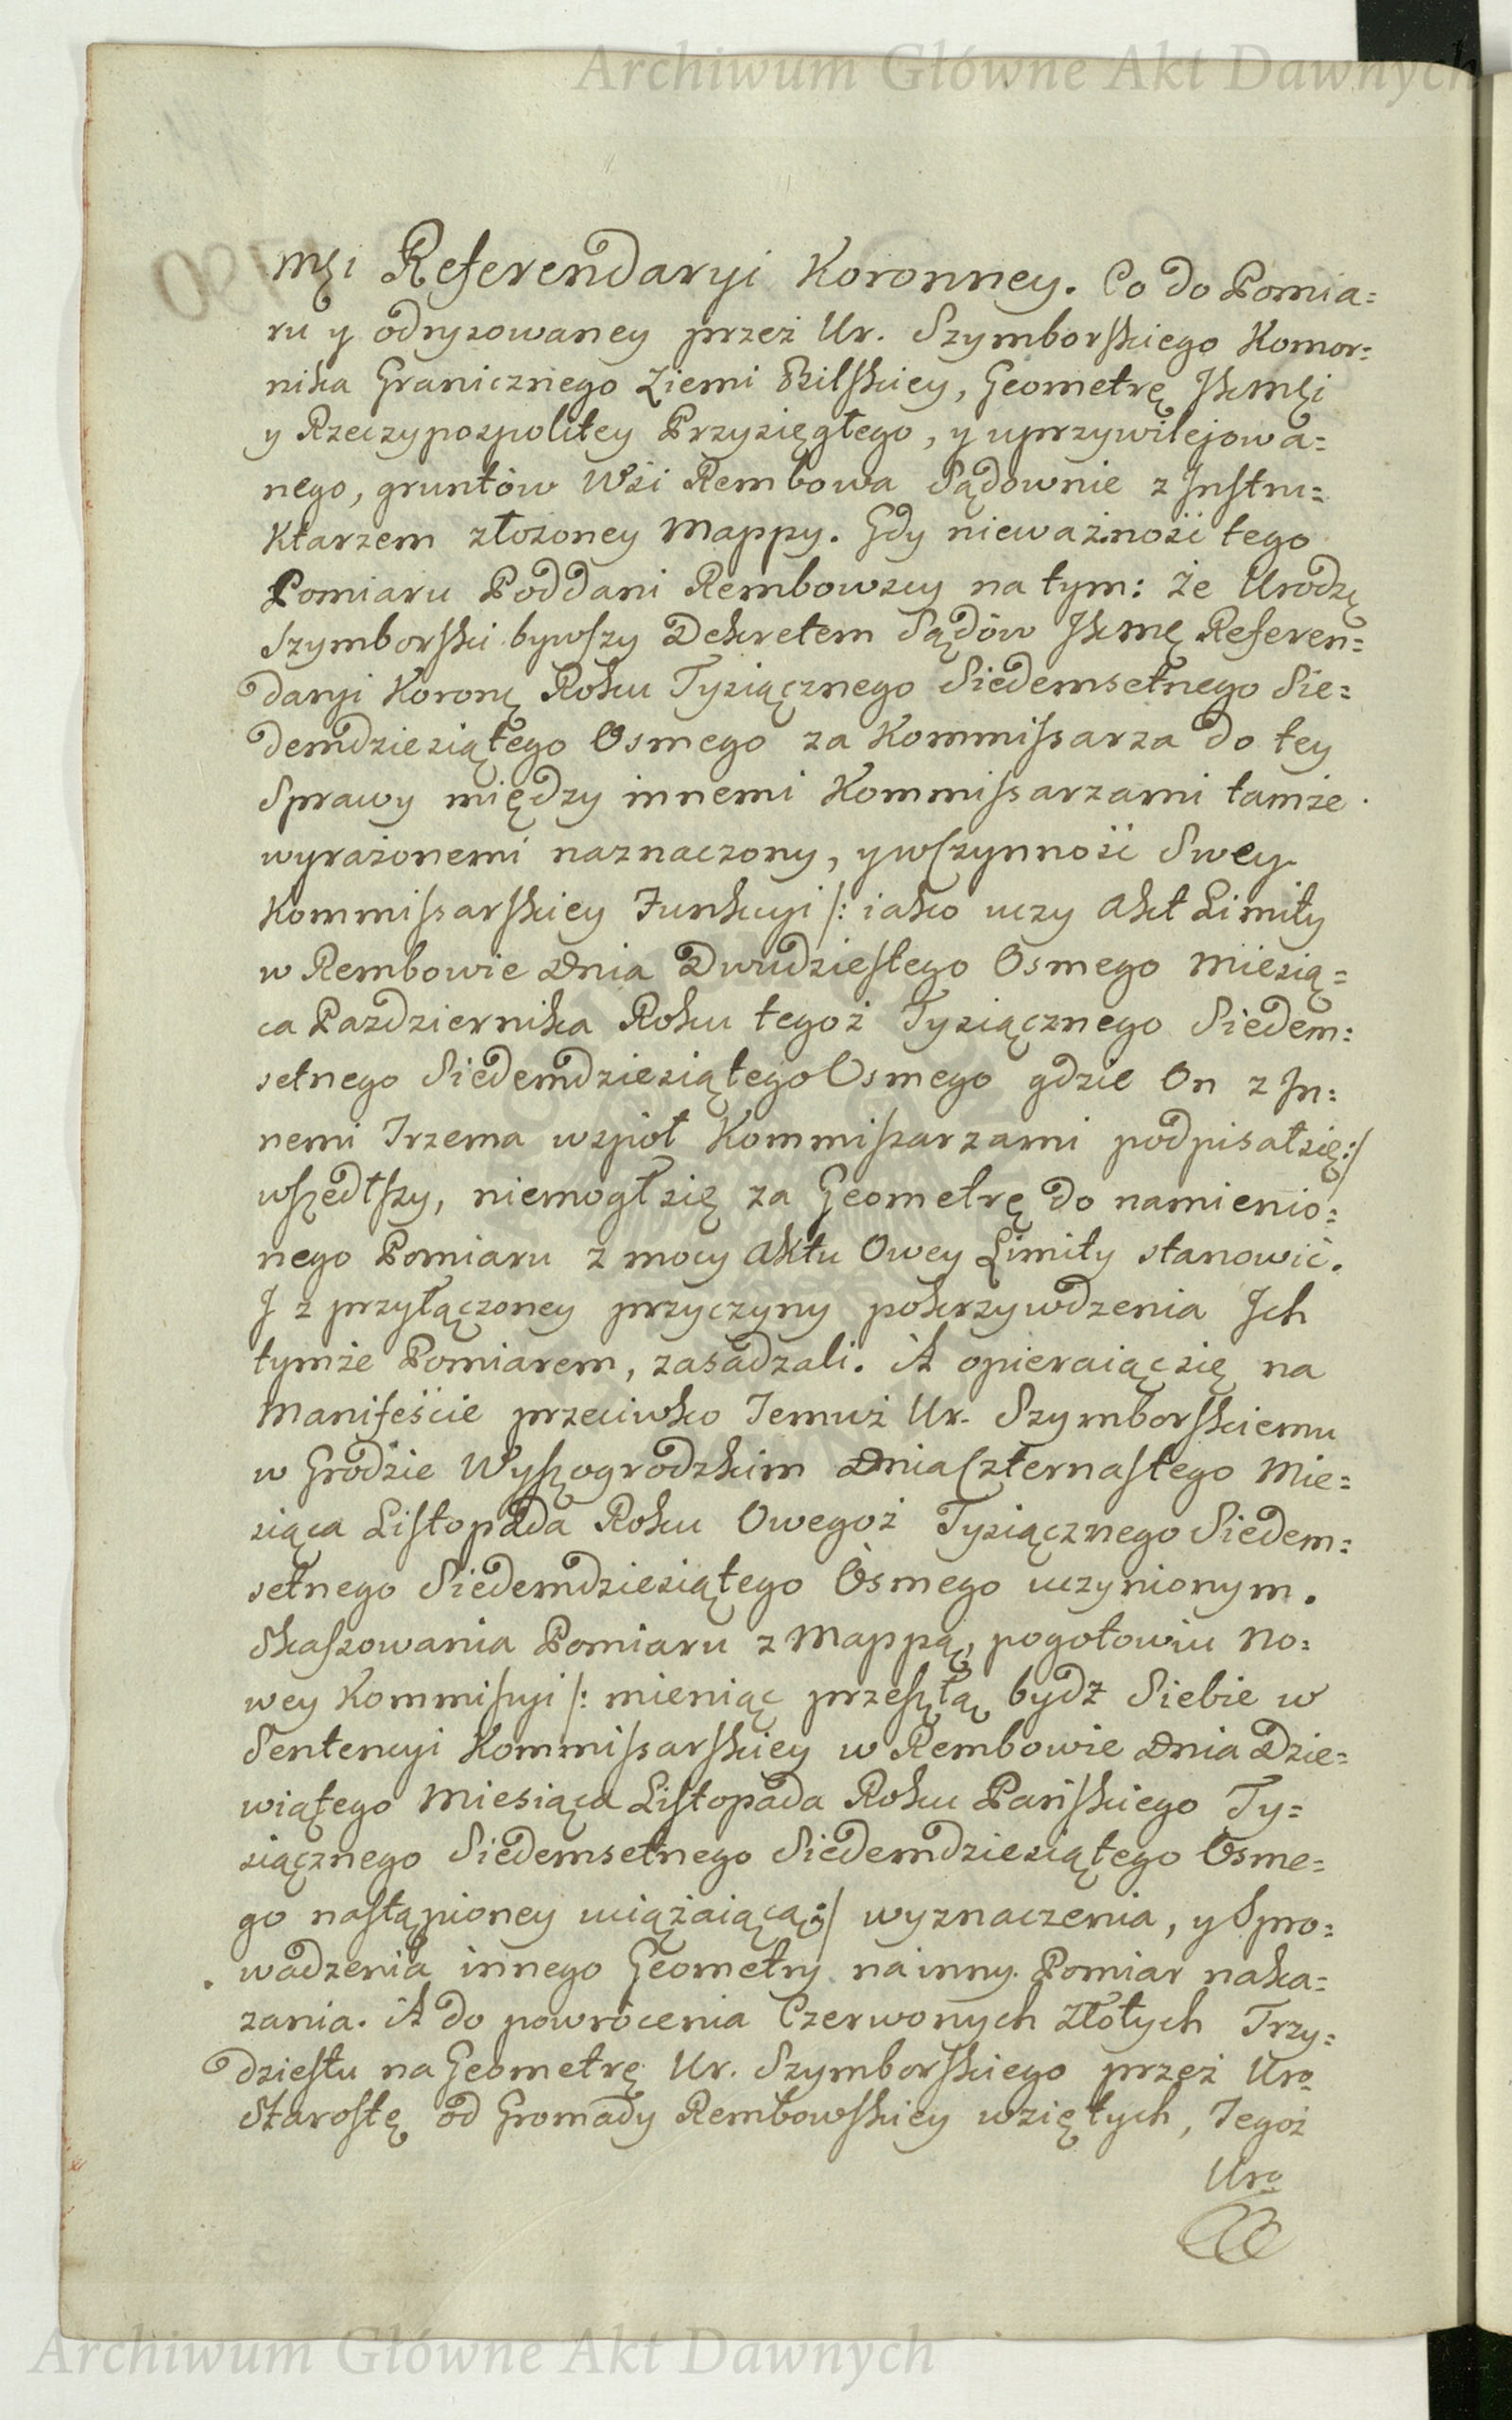 Archiwum Główne Akt Dawnych
Męi Referendaryi Koronney. Co do Pomia=
ru y odrysowaney przez Ur. Szymborskiego Komor=
nika Granicznego Ziemi Bilskiey, Geometrę JKMęi
y Rzeczypospolitey Przysięgłego, y uprzywilejowa=
nego, gruntów Wsi Rembowa Sądownie z Instru=
Ktarzem złożoney Mappy. Gdy nieważność tego
Pomiaru Poddani Rembowscy na tym: że Urodzę
Szymborski bywszy Dekretem Sądów JKmę Referen=
daryi Koronę Roku Tysiącznego Siedemsetnego Sie=
demdziesiątego Osmego za Kommissarza do tey
Sprawy między innemi Kommissarzami tamże
wyrażonemi naznaczony, y w czynność Swey
Kommissarskiey Funkcyi /: iako uczy Akt Limity
w Rembowie Dnia Dwudziestego Osmego Miesią=
ca Pazdziernika Roku tegoż Tysiącznego Siedem=
setnego Siedemdziesiątego Osmego gdzie On z In=
nemi Trzema wspoł Kommissarzami podpisał się :/
wszedłszy, niemogł się za Geometrę do namienio=
nego Pomiaru z mocy Aktu Owey Limity stanowić.
I z przyłączoney przyczyny pokrzywdzenia Ich
tymże Pomiarem, zasadzali. A opieraiąc się na
Manifeście przeciwko Temuż Ur. Szymborskiemu
w Grodzie Wyszogrodzkim Dnia Czternastego Mie=
siąca Listopada Roku Owegoż Tysiącznego Siedem=
setnego Siedemdziesiątego Osmego uczynionym.
Skassowania Pomiaru z Mappą, pogotowiu No=
wey Kommissyi /: mieniąc przeszłą bydź Siebie w
Sentencyi Kommissarskiey w Rembowie Dnia Dzie=
wiątego Miesiąca Listopada Roku Pańskiego Ty=
siącznego Siedemsetnego Siedemdziesiątego Osme=
go nastąpioney uciążaiącą :/ wyznaczenia, y Spro=
wadzenia innego Geometry na inny Pomiar naka=
zania. A do powrócenia Czerwonych Złotych Trzy=
dziestu na Geometrę Ur. Szymborskiego przez Uro
Starostę od Gromady Rembowskiey wziętych, Tegoż
Uro
Archiwum Główne Akt Dawnych